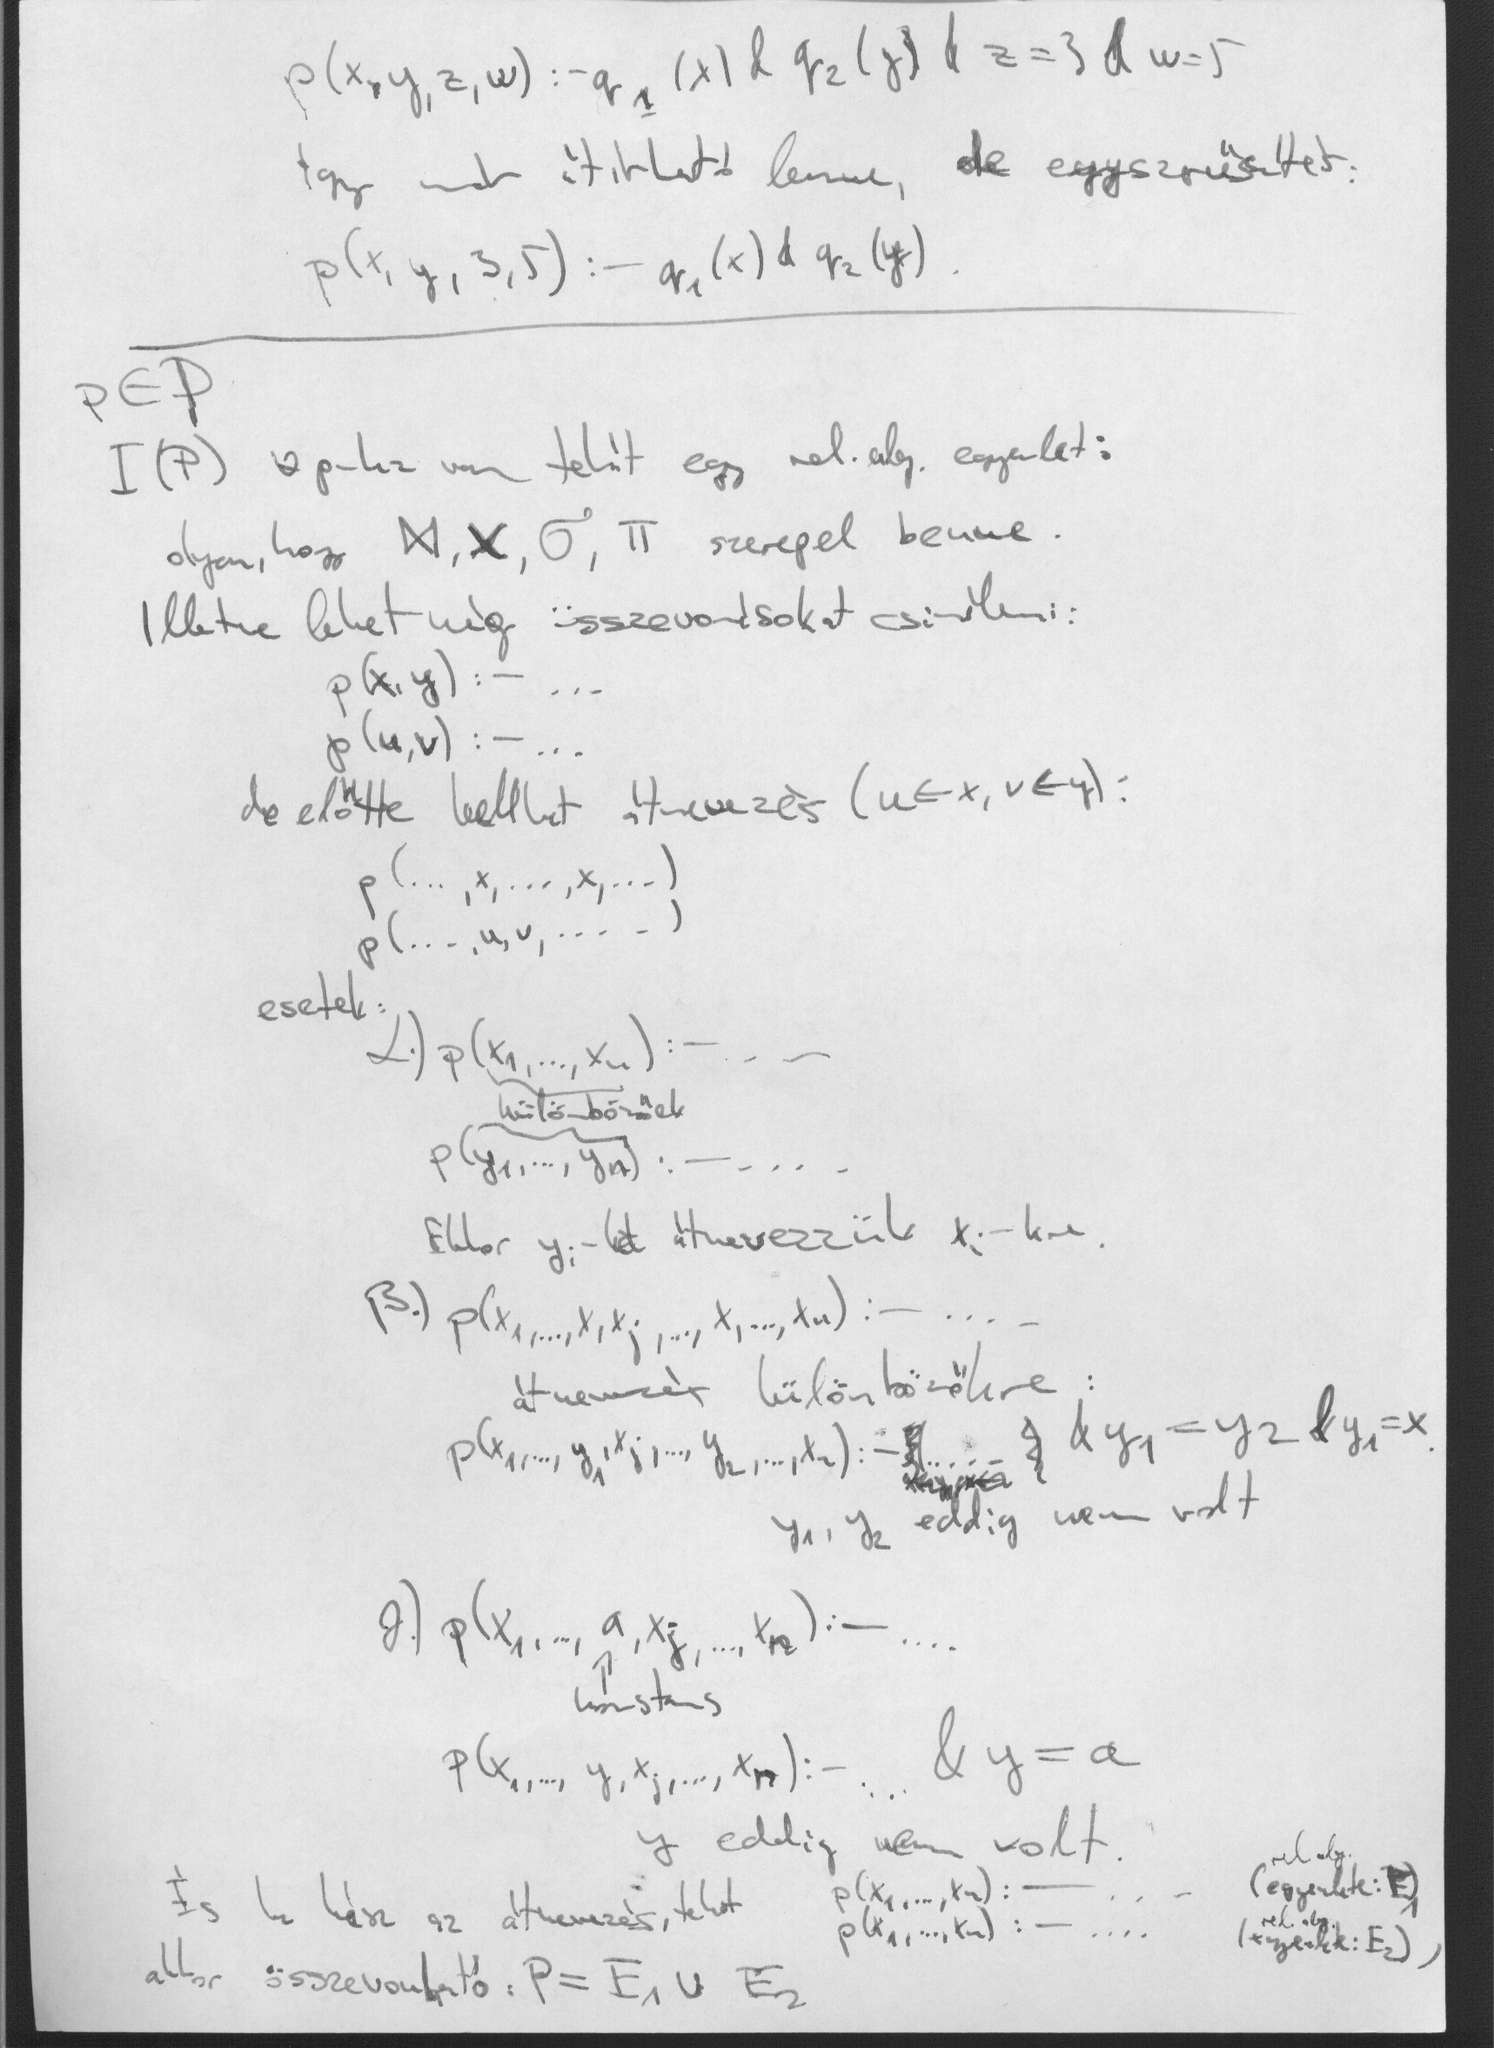 p(x,y,z,w) :- q₁(x) & q₂(y) & z=3 & w=5
Így már átírható lenne, de egyszerűsített:
p(x, y, 3, 5) :- q₁(x) & q₂(y).
p∈P
I(P) ∀p-hez van tehát egy rel. alg. egyenlet:
olyan, hogy ⋈, ×, σ, π szerepel benne.
Illetve lehet még összevonásokat csinálni:
p(x,y) :- ...
p(u,v) :- ...
de előtte kellhet átnevezés (u←x, v←y):
p(...,x,....,x,...)
p(....,u,v,.....)
esetek:
α.) p(x₁,...,xₙ) :- ...
különbözőek
p(y₁,...,yₙ) :- ....
Ekkor yᵢ-ket átnevezzük xᵢ-kre.
β.) p(x₁,...,x,xⱼ,...,x,...,xₙ) :- ....
átnevezés különbözőkre:
p(x₁,...,y₁,xⱼ,...,y₂,...,xₙ) :- {.....} & y₁=y₂ & y₁=x.
y₁, y₂ eddig nem volt
γ.) p(x₁,...,a,xⱼ,...,xₙ) :- ....
↑
konstans
p(x₁,..., y, xⱼ,...,xₙ) :- ... & y=a
y eddig nem volt.
És ha kész az átnevezés, tehát p(x₁,...,xₙ) :- ... (rel. alg. egyenlete: E₁)
p(x₁,...,xₙ) :- .... (rel. alg. egyenlete: E₂),
akkor összevonható: P = E₁ ∪ E₂